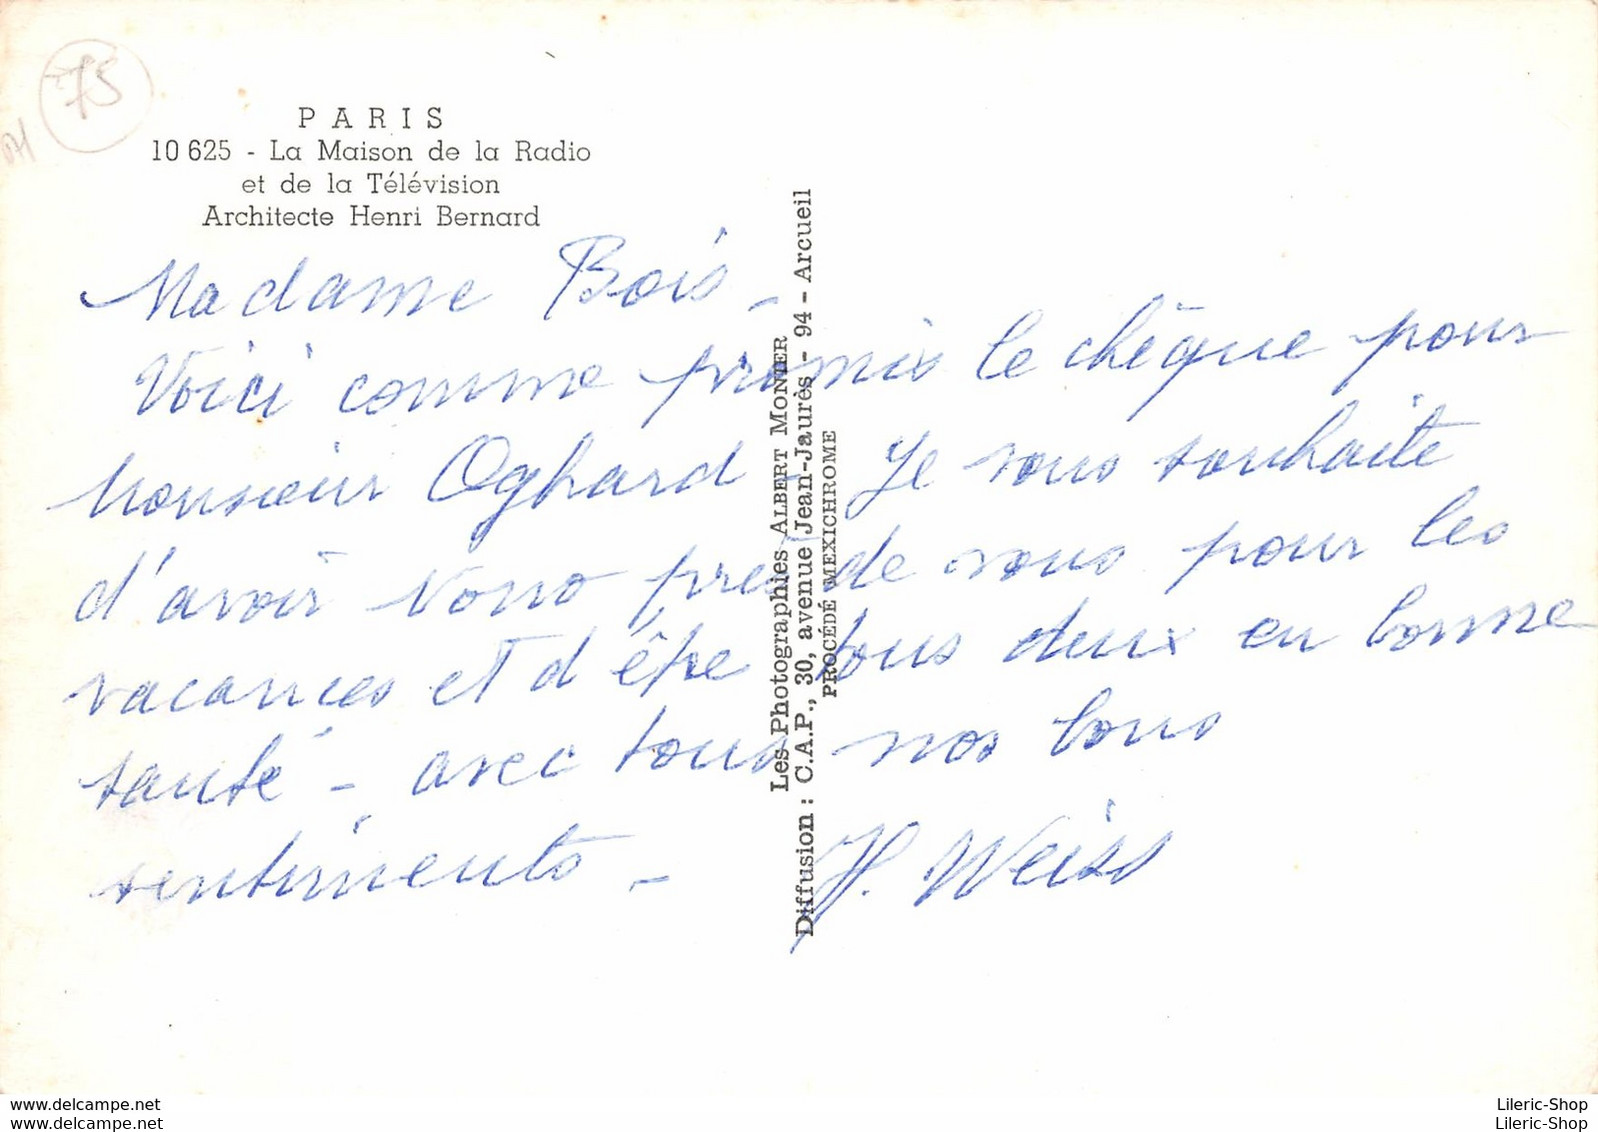 75
PARIS
10 625 - La Maison de la Radio
et de la Télévision
Architecte Henri Bernard
Madame Bois -
Voici comme promis le chèque pour
Monsieur Oghard - Je vous souhaite
d'avoir Nono près de vous pour les
vacances et d'être tous deux en bonne
santé - avec tous nos bons
sentiments -
H. Weiss
Les Photographies ALBERT MONIER
Diffusion : C.A.P., 30, avenue Jean-Jaurès - 94 - Arcueil
PROCÉDÉ MEXICHROME
delcampe.net
delcampe.net
Lileric-Shop
Lileric-Shop